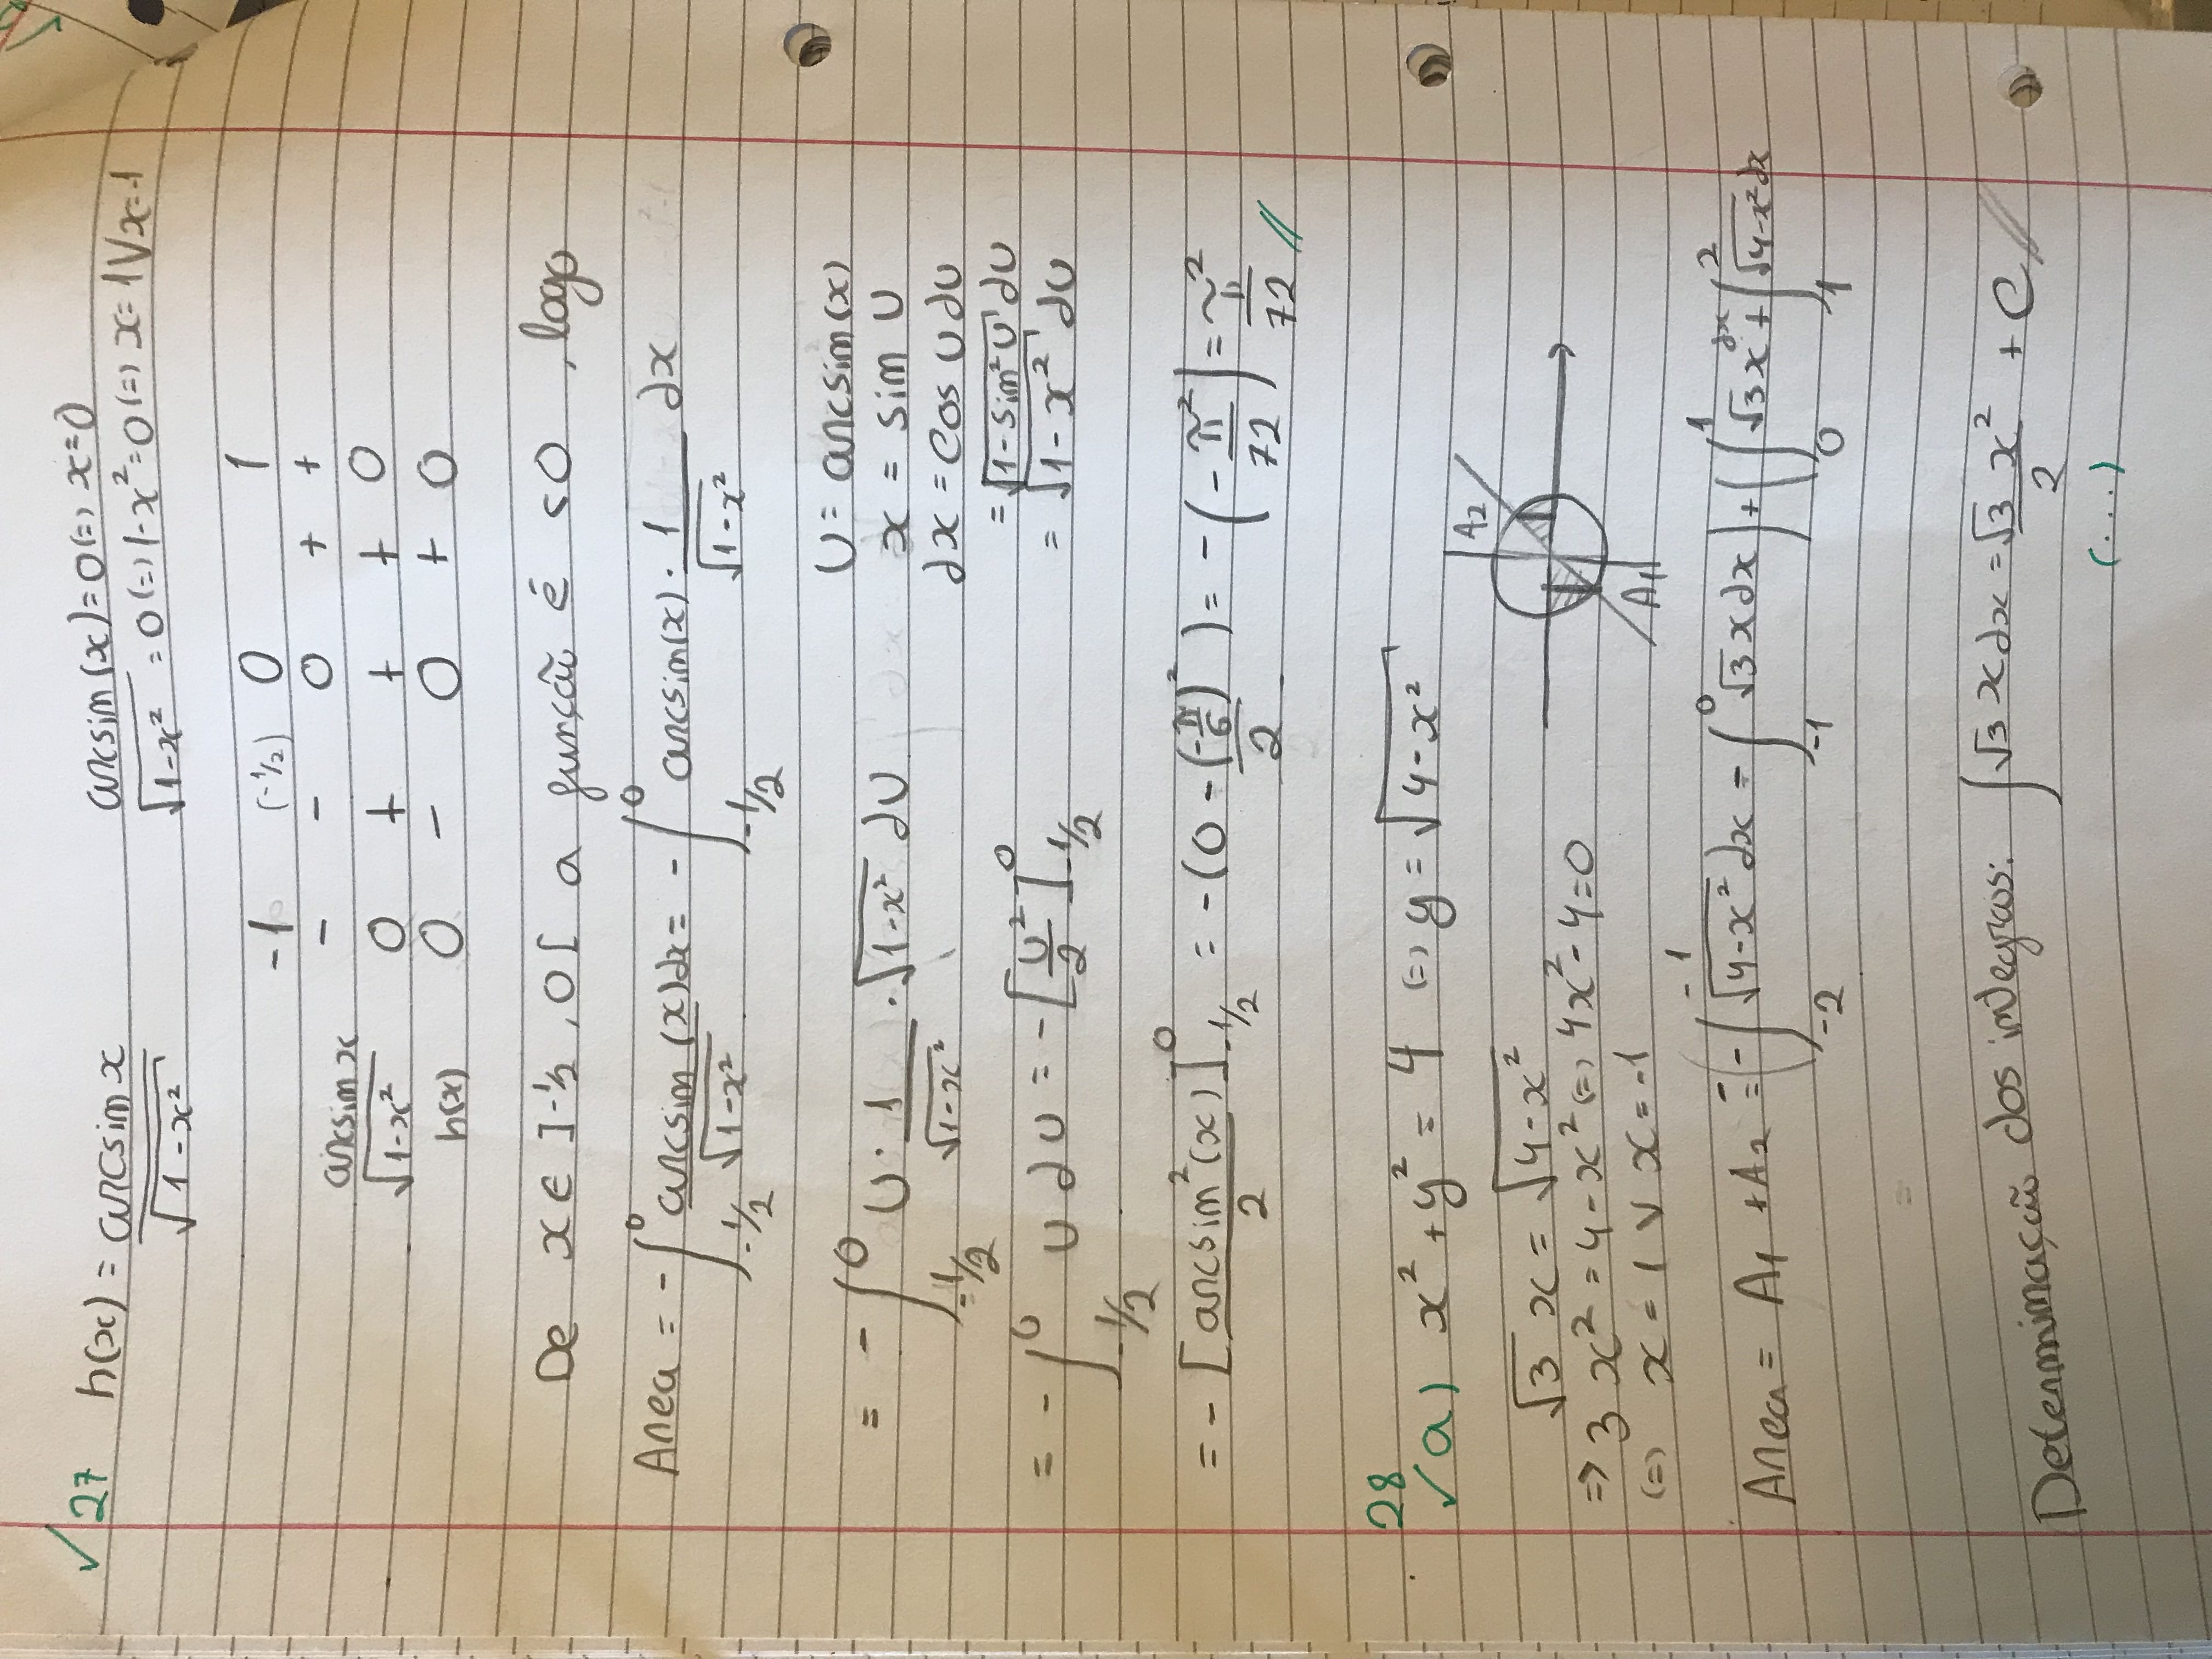 ✓27 h(x) = arcsim x / √(1-x²)
arcsim(x)=0 (=) x=0
√(1-x²) = 0 (=) 1-x²=0 (=) x=1 V x=-1
-1 (-1/2) 0 1
arcsim x - - 0 + +
√(1-x²) 0 + + + 0
h(x) 0 - 0 + 0
De x ∈ ]-½, 0[ a função é <0, logo
Area = -∫_{-1/2}^{0} arcsim(x)/√(1-x²) dx = -∫_{-1/2}^{0} arcsim(x) · 1/√(1-x²) dx
= -∫_{-1/2}^{0} U · 1/√(1-x²) · √(1-x²) dU
U = arcsim(x)
x = sim U
dx = cos U dU
= √(1-sim²U) dU
= √(1-x²) dU
= -∫_{-1/2}^{0} U dU = -[U²/2]_{-1/2}^{0}
= -[arcsim²(x)/2]_{-1/2}^{0} = -(0 - (-π/6)²/2) = -(-π²/72) = π²/72 //
28
✓a) x² + y² = 4 (=) y = √(4-x²)
√3 x = √(4-x²)
=> 3x² = 4-x² (=) 4x²-4=0
(=) x = 1 V x = -1
A2
A1
Area = A₁ + A₂ = (-∫_{-2}^{-1} √(4-x²) dx - ∫_{-1}^{0} √3 x dx) + (∫_{0}^{1} √3 x dx + ∫_{1}^{2} √(4-x²) dx
=
Determimação dos integrais: ∫√3 x dx = √3 x²/2 + C //
(...)